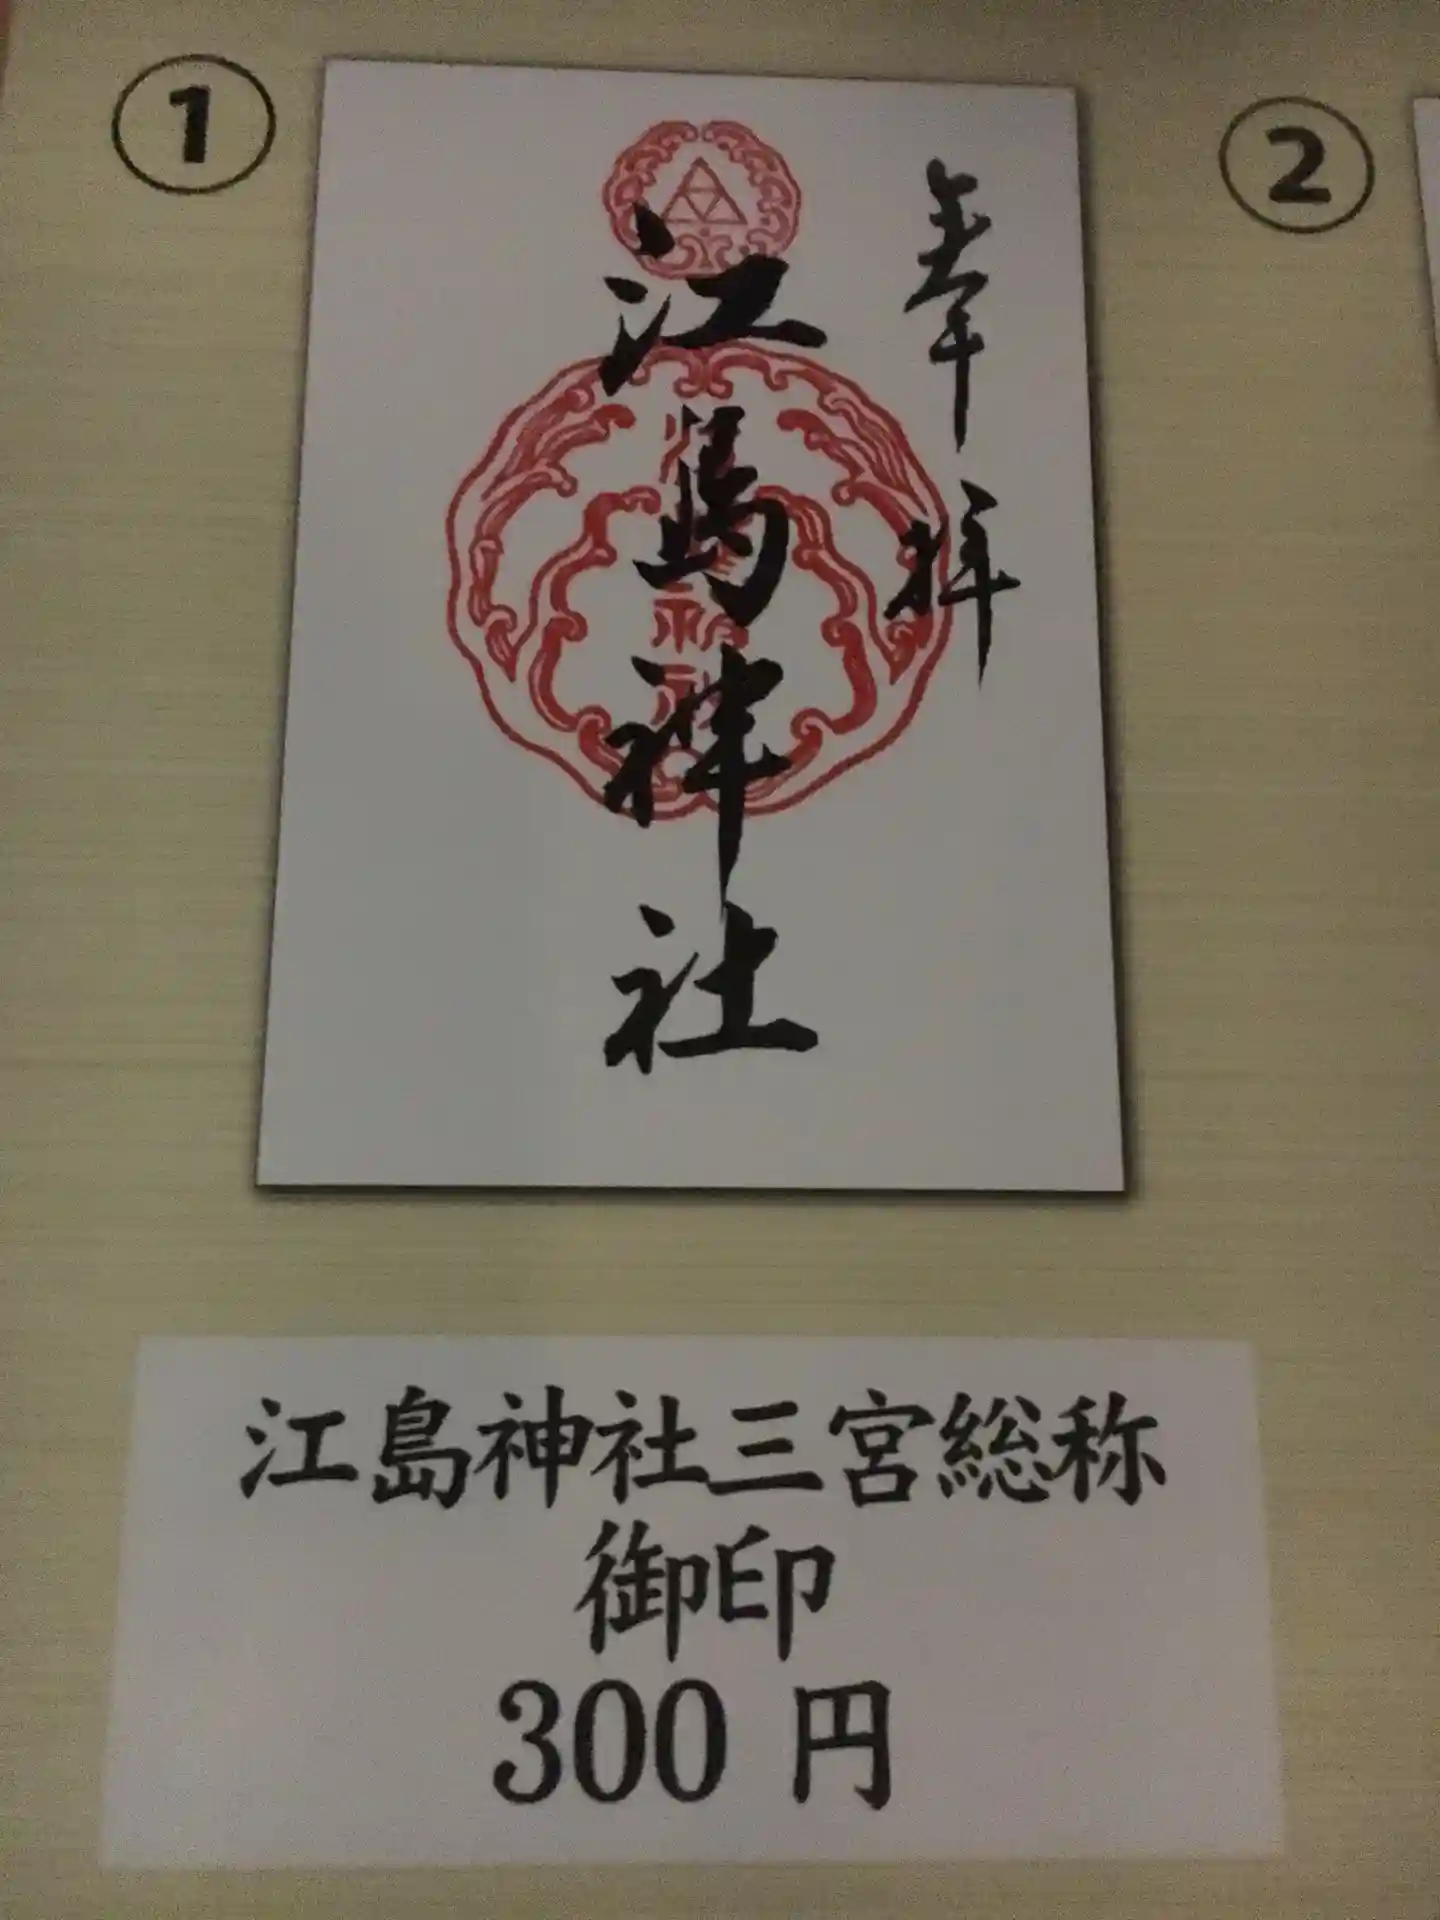 ①
②
奉拝
江島神社
江島神社三宮総称
御印
300 円